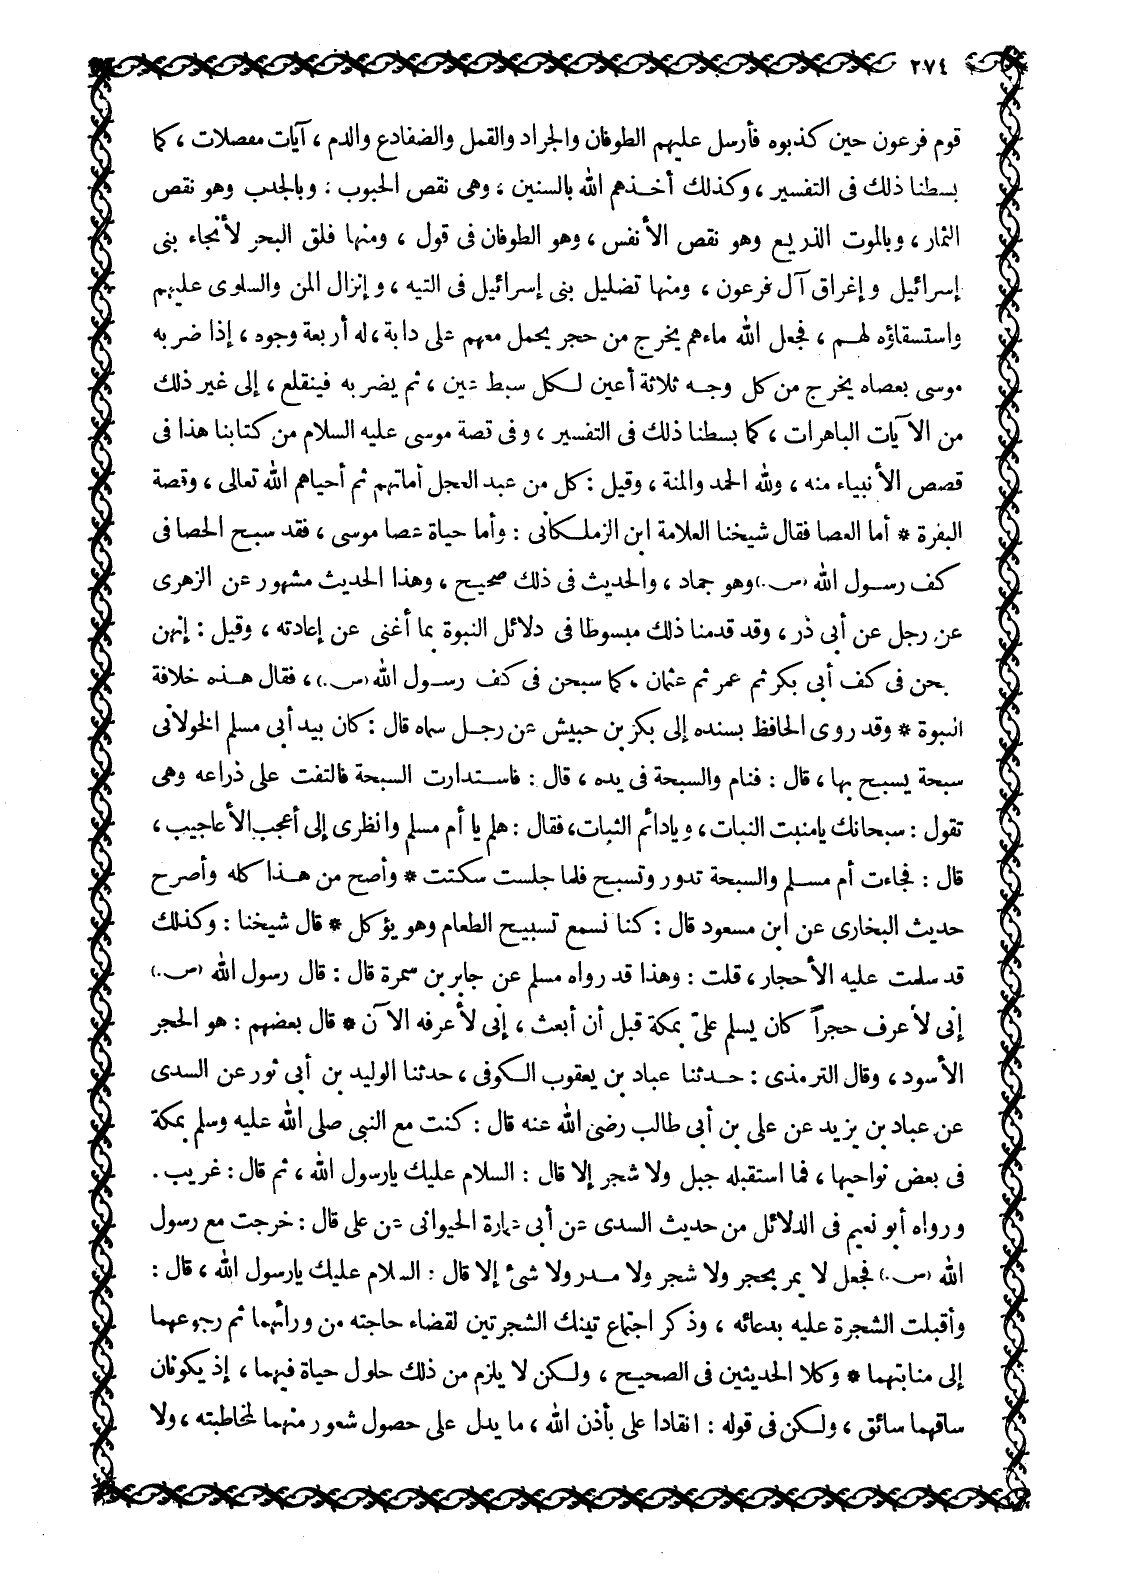 ٢٧٤
قوم فرعون حين كذبوه فأرسل عليهم الطوفان والجراد والقمل والضفادع والدم ، آيات مفصلات ، كما
بسطنا ذلك فى التفسير ، وكذلك أخذهم الله بالسنين ، وهى نقص الحبوب ، وبالجدب وهو نقص
الثمار ، وبالموت الذريع وهو نقص الأنفس ، وهو الطوفان فى قول ، ومنها فلق البحر لأنجاء بنى
إسرائيل وإغراق آل فرعون ، ومنها تضليل بنى إسرائيل فى التيه ، وإنزال المن والسلوى عليهم
واستسقاؤه لهم ، فجعل الله ماءهم يخرج من حجر يحمل معهم على دابة ، له أربعة وجوه ، إذا ضربه
موسى بعصاه يخرج من كل وجه ثلاثة أعين لكل سبط عين ، ثم يضربه فينقلع ، إلى غير ذلك
من الآيات الباهرات ، كما بسطنا ذلك فى التفسير ، وفى قصة موسى عليه السلام من كتابنا هذا فى
قصص الأنبياء منه ، ولله الحمد والمنة ، وقيل : كل من عبد العجل أماتهم ثم أحياهم الله تعالى ، وقصة
البقرة * أما العصا فقال شيخنا العلامة ابن الزملكانى : وأما حياة عصا موسى ، فقد سبح الحصا فى
كف رسول الله (ص.) وهو جماد ، والحديث فى ذلك صحيح ، وهذا الحديث مشهور عن الزهرى
عن رجل عن أبى ذر ، وقد قدمنا ذلك مبسوطا فى دلائل النبوة بما أغنى عن إعادته ، وقيل : إنهن
بحن فى كف أبى بكر ثم عمر ثم عثمان ، كما سبحن فى كف رسول الله (ص.) ، فقال هذه خلافة
النبوة * وقد روى الحافظ بسنده إلى بكر بن حبيش عن رجل سماه قال : كان بيد أبى مسلم الخولانى
سبحة يسبح بها ، قال : فنام والسبحة فى يده ، قال : فاستدارت السبحة فالتفت على ذراعه وهى
تقول : سبحانك يامنبت النبات ، ويادائم الثبات ، فقال : هلم يا أم مسلم وانظرى إلى أعجب الأعاجيب ،
قال : فجاءت أم مسلم والسبحة تدور وتسبح فلما جلست سكتت * وأصح من هذا كله وأصرح
حديث البخارى عن ابن مسعود قال : كنا نسمع تسبيح الطعام وهو يؤكل * قال شيخنا : وكذلك
قد سلمت عليه الأحجار ، قلت : وهذا قد رواه مسلم عن جابر بن سمرة قال : قال رسول الله (ص.)
إنى لأعرف حجراً كان يسلم علىّ بمكة قبل أن أبعث ، إنى لأعرفه الآن * قال بعضهم : هو الحجر
الأسود ، وقال الترمذى : حدثنا عباد بن يعقوب الكوفى ، حدثنا الوليد بن أبى ثور عن السدى
عن عباد بن يزيد عن على بن أبى طالب رضى الله عنه قال : كنت مع النبى صلى الله عليه وسلم بمكة
فى بعض نواحيها ، فما استقبله جبل ولا شجر إلا قال : السلام عليك يارسول الله ، ثم قال : غريب .
ورواه أبو نعيم فى الدلائل من حديث السدى عن أبى عمارة الحيوانى عن على قال : خرجت مع رسول
الله (ص.) فجعل لا يمر بحجر ولا شجر ولا مدر ولا شئ إلا قال : السلام عليك يارسول الله ، قال :
وأقبلت الشجرة عليه بدعائه ، وذكر اجتماع تينك الشجرتين لقضاء حاجته من ورائهما ثم رجوعهما
إلى منابتهما * وكلا الحديثين فى الصحيح ، ولكن لا يلزم من ذلك حلول حياة فيهما ، إذ يكونان
ساقهما سائق ، ولكن فى قوله : انقادا على بأذن الله ، ما يدل على حصول شعور منهما لمخاطبته ، ولا